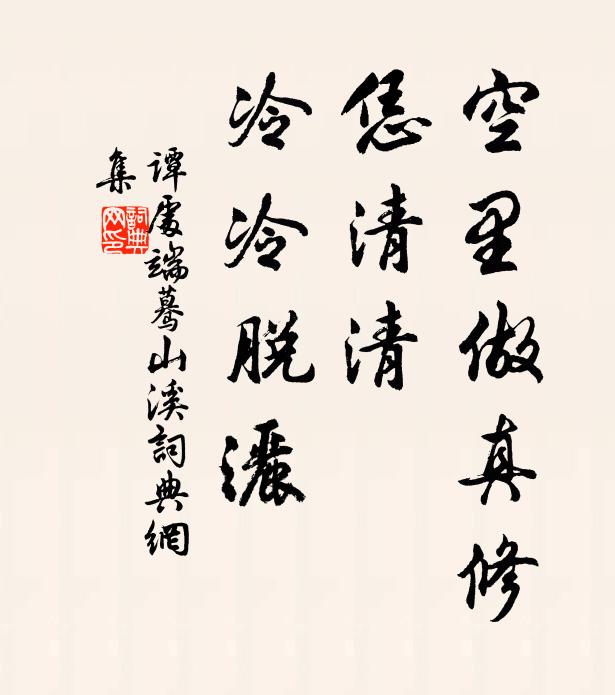 空里做真修
恁清清
冷冷脱灑
譚處端驀山溪詞典網
集
詞典網印